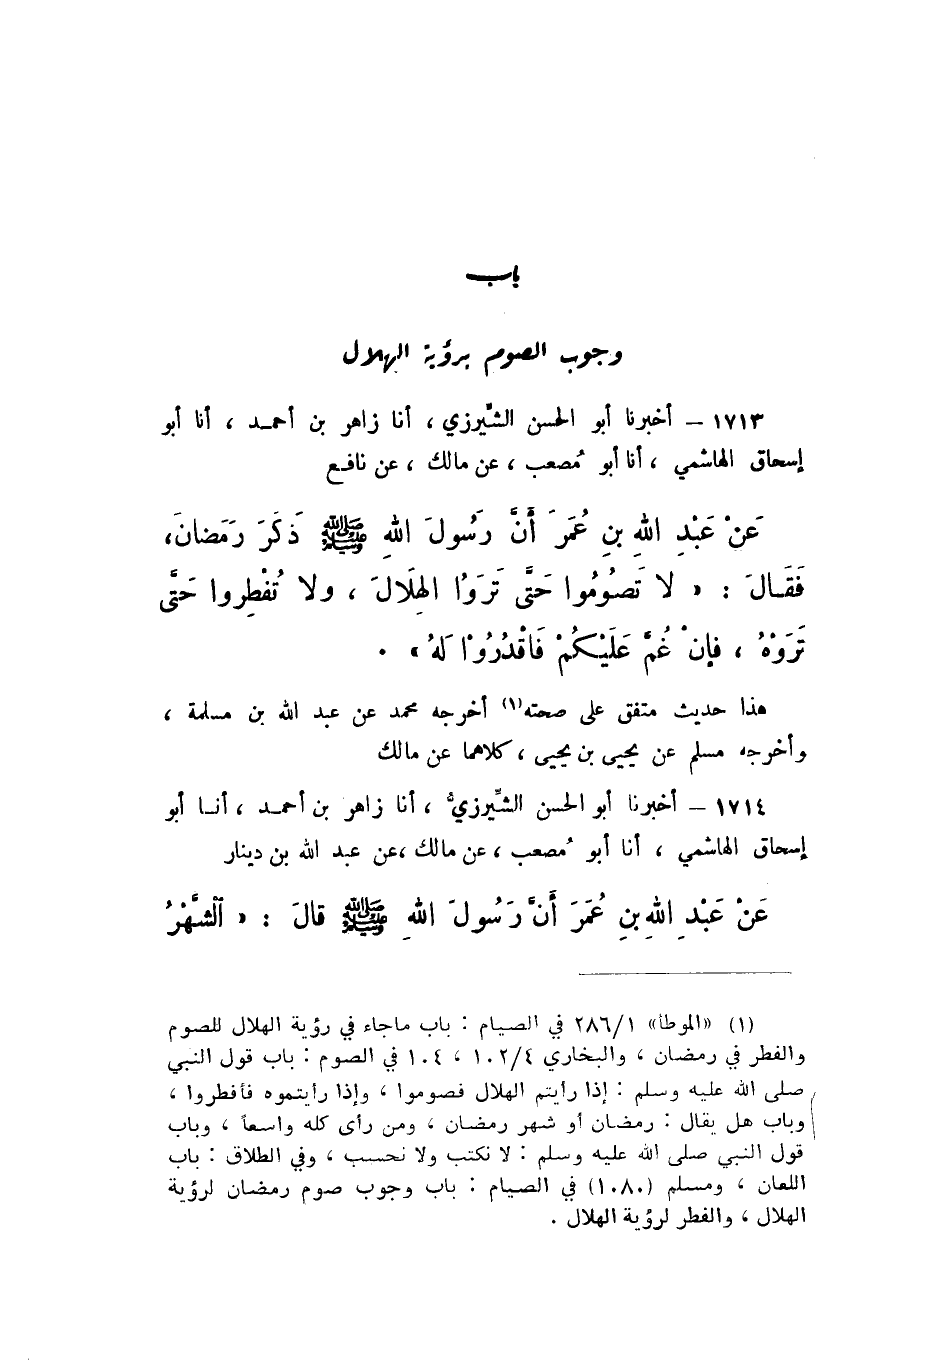 باب
وجوب الصوم برؤية الهلال
١٧١٣ – أخبرنا أبو الحسن الشِّيرزي ، أنا زاهر بن أحمـد ، أنا أبو
إسحاق الهاشمي ، أنا أبو مُصعب ، عن مالك ، عن نافـع
عَنْ عَبْدِ اللهِ بنِ عُمَرَ أَنَّ رَسُولَ اللهِ ﷺ ذَكَرَ رَمَضانَ،
فَقَـالَ : « لا تَصُومُوا حَتَّى تَرَوُا الهِلَالَ ، ولا تُفْطِروا حَتَّى
تَرَوْهُ ، فإنْ غُمَّ عَلَيْكُمْ فَاقْدُرُوْا لَهُ » .
هذا حديث متفق على صحته(١) أخرجه محمد عن عبد الله بن مسلمة ،
وأخرجه مسلم عن يحيى بن يحيى ، كلاهما عن مالك
١٧١٤ – أخبرنا أبو الحسن الشِّيرزيُّ ، أنا زاهر بن أحمـد ، أنـا أبو
إسحاق الهاشمي ، أنا أبو مُصعب ، عن مالك ،عن عبد الله بن دينار
عَنْ عَبْدِ اللهِ بنِ عُمَرَ أَنَّ رَسُولَ اللهِ ﷺ قالَ : « ٱلشَّهْرُ
(١) «الموطأ» ٢٨٦/١ في الصيام : باب ماجاء في رؤية الهلال للصوم
والفطر في رمضان ، والبخاري ١٠٢/٤ ، ١٠٤ في الصوم : باب قول النبي
صلى الله عليه وسلم : إذا رأيتم الهلال فصوموا ، وإذا رأيتموه فأفطروا ،
وباب هل يقال : رمضان أو شهر رمضان ، ومن رأى كله واسعاً ، وباب
قول النبي صلى الله عليه وسلم : لا نكتب ولا نحسب ، وفي الطلاق : باب
اللعان ، ومسلم (١٠٨٠) في الصيام : باب وجوب صوم رمضان لرؤية
الهلال ، والفطر لرؤية الهلال .